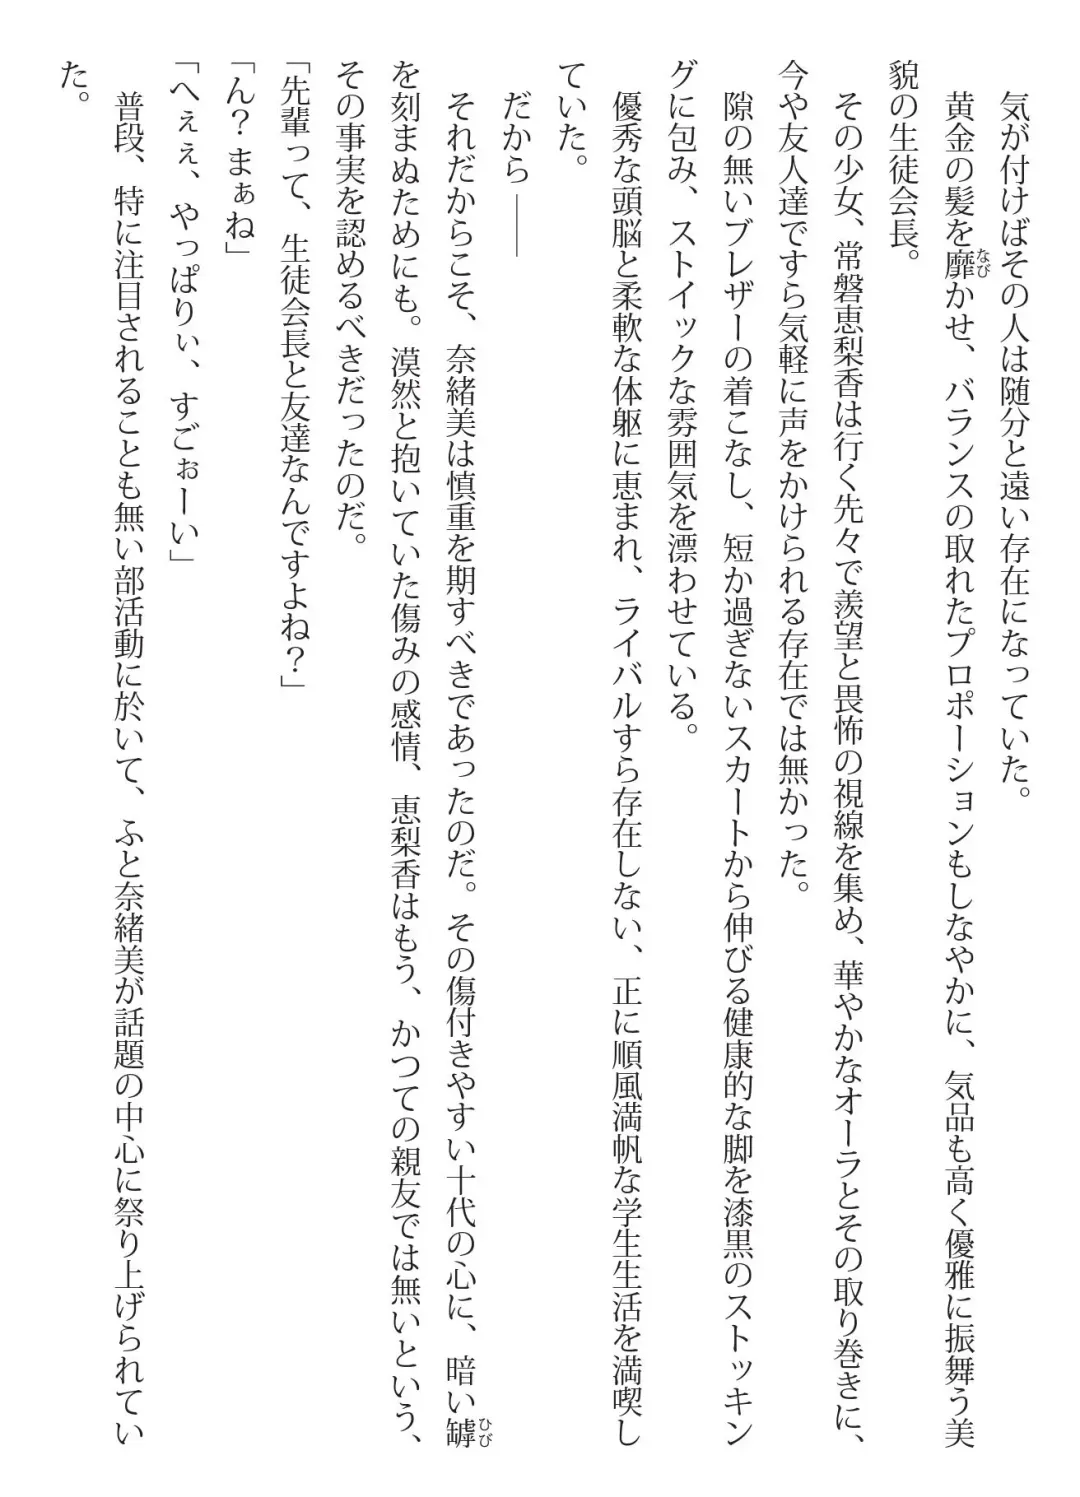 気が付けばその人は随分と遠い存在になっていた。
黄金の髪を靡かせ、バランスの取れたプロポーションもしなやかに、気品も高く優雅に振舞う美
なび
貌の生徒会長。
その少女、常磐恵梨香は行く先々で羨望と畏怖の視線を集め、華やかなオーラとその取り巻きに、
今や友人達ですら気軽に声をかけられる存在では無かった。
隙の無いブレザーの着こなし、短か過ぎないスカートから伸びる健康的な脚を漆黒のストッキン
グに包み、ストイックな雰囲気を漂わせている。
優秀な頭脳と柔軟な体躯に恵まれ、ライバルすら存在しない、正に順風満帆な学生生活を満喫し
ていた。
だから――
それだからこそ、奈緒美は慎重を期すべきであったのだ。その傷付きやすい十代の心に、暗い罅
ひび
を刻まぬためにも。漠然と抱いていた傷みの感情、恵梨香はもう、かつての親友では無いという、
その事実を認めるべきだったのだ。
「先輩って、生徒会長と友達なんですよね？」
「ん？まぁね」
「へぇぇ、やっぱりぃ、すごぉーい」
普段、特に注目されることも無い部活動に於いて、ふと奈緒美が話題の中心に祭り上げられてい
た。